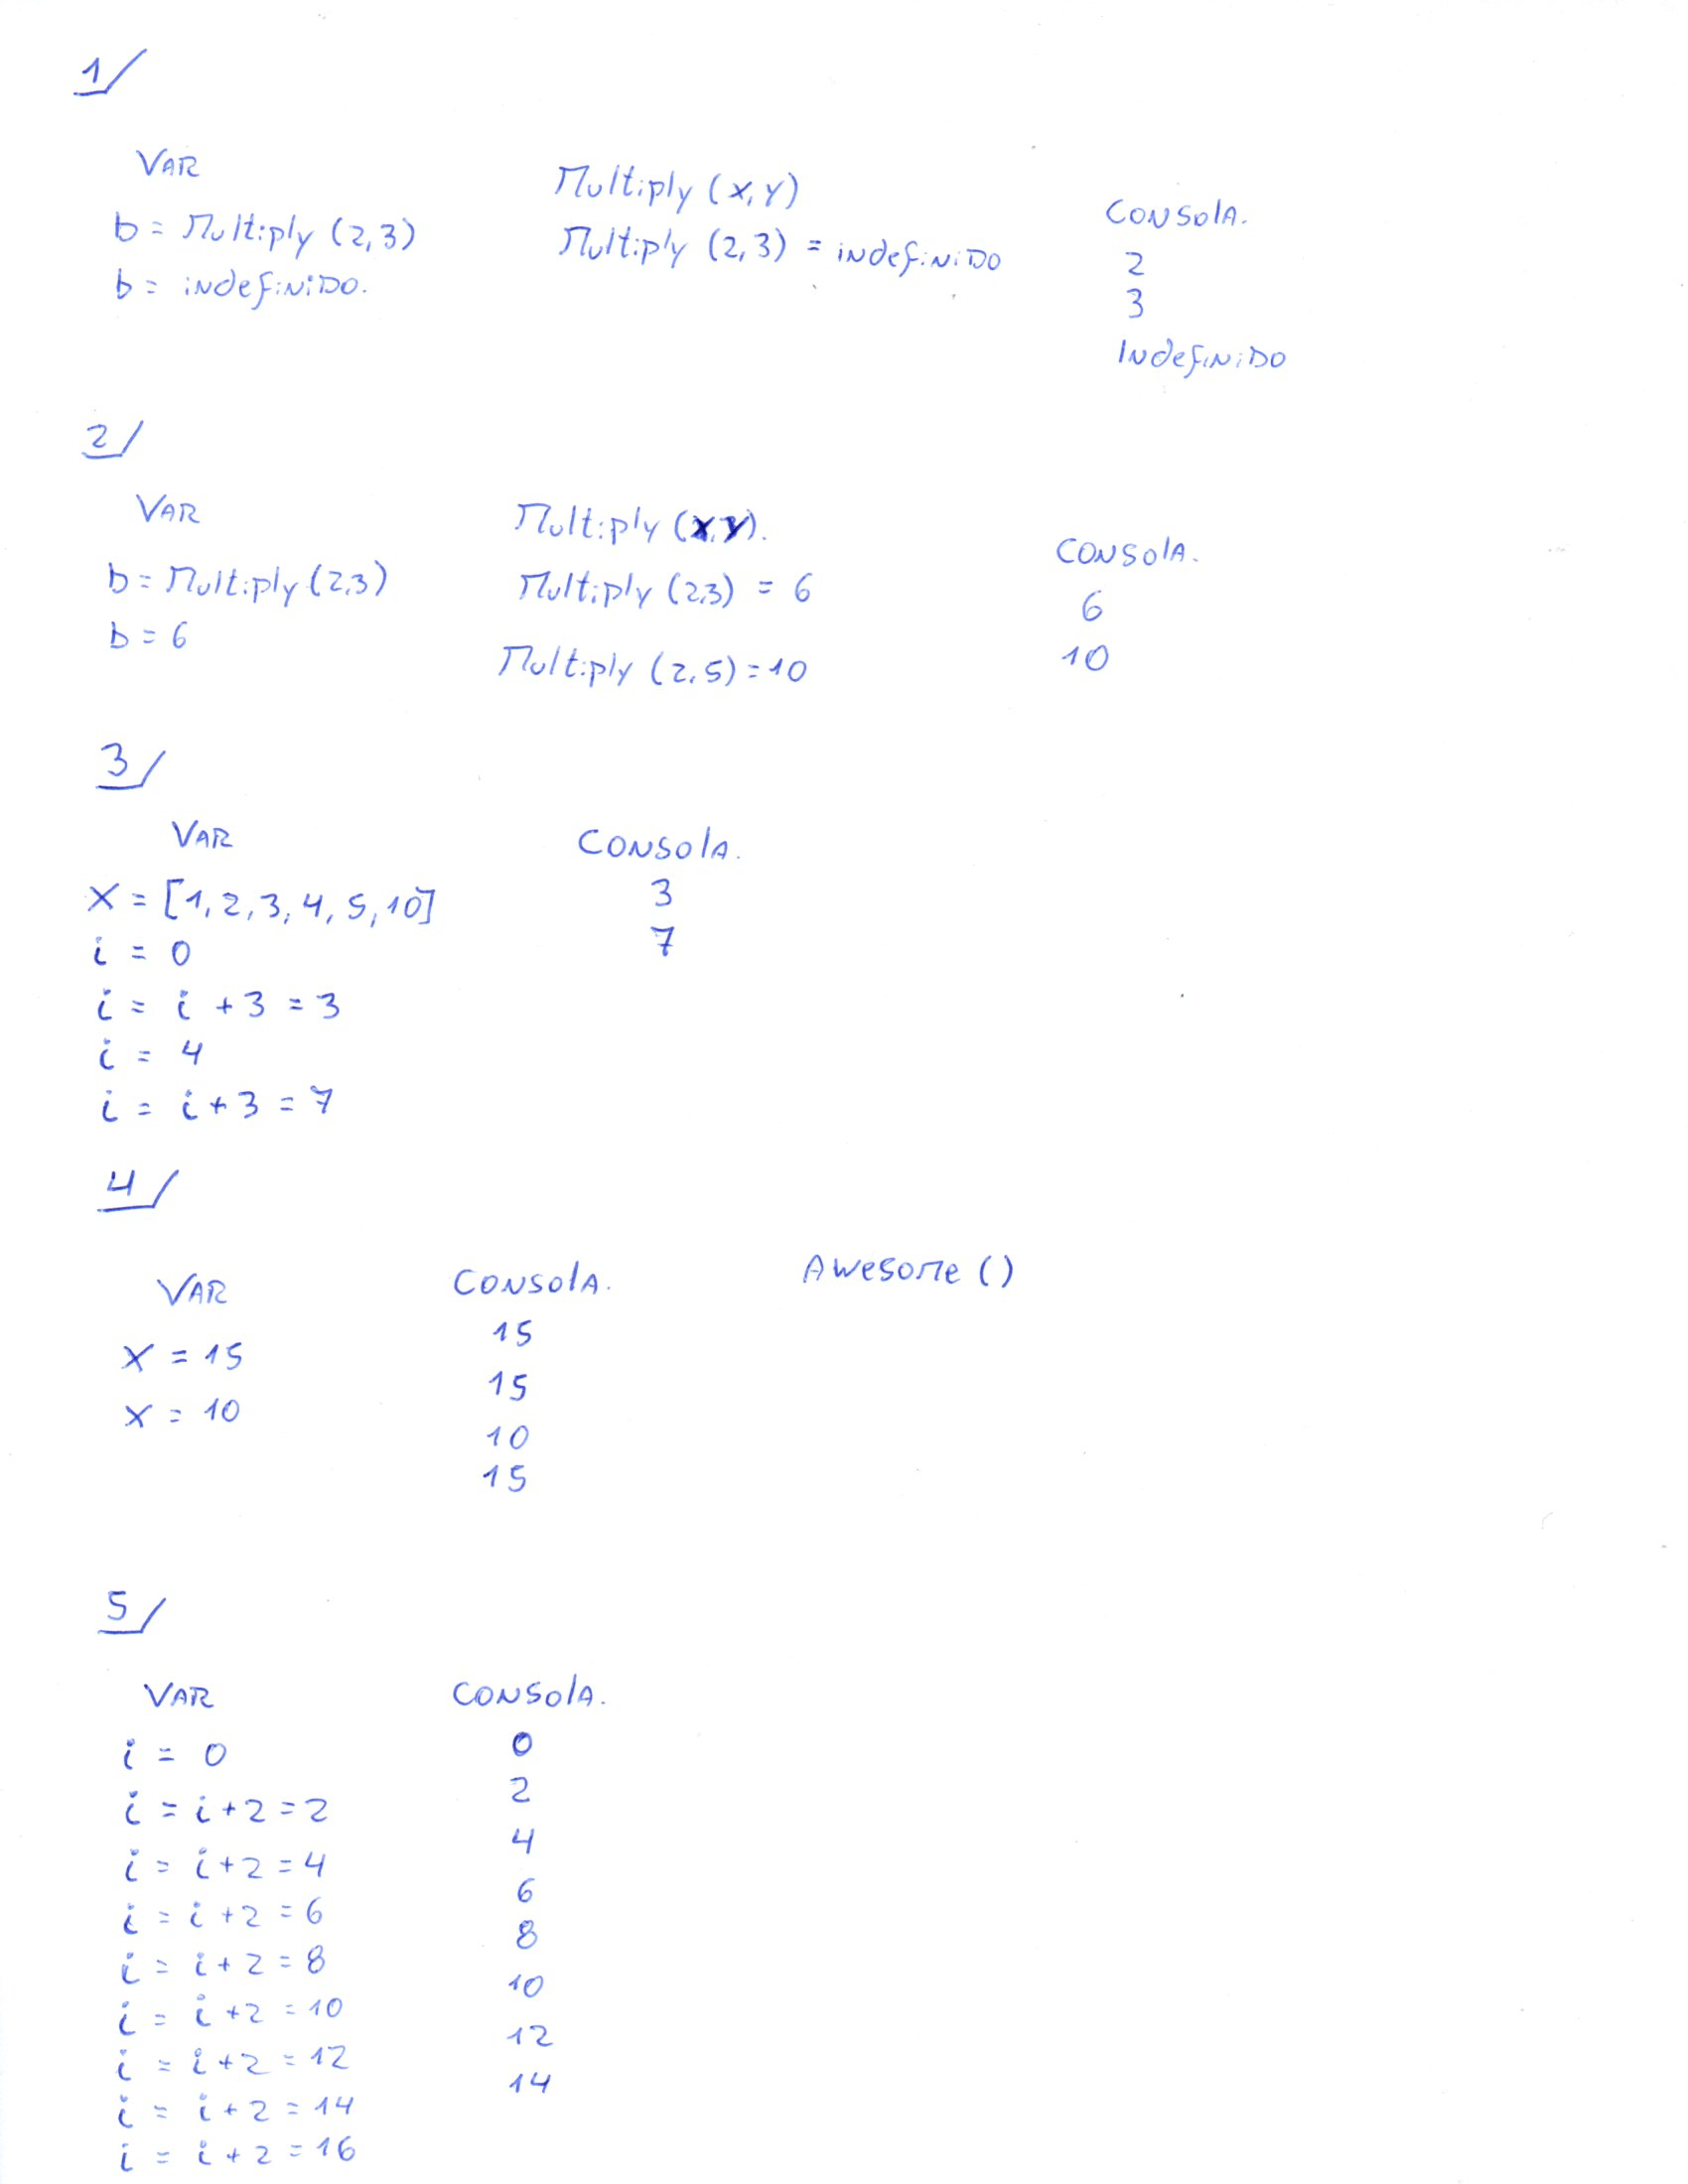 1/
VAR
b = Multiply (2,3)
b = indefinido.
Multiply (x,y)
Multiply (2,3) = indefinido
Consola.
2
3
Indefinido
2/
VAR
b = Multiply (2,3)
b = 6
Multiply (x,y).
Multiply (2,3) = 6
Multiply (2,5) = 10
Consola.
6
10
3/
VAR
x = [1, 2, 3, 4, 5, 10]
i = 0
i = i + 3 = 3
i = 4
i = i + 3 = 7
Consola.
3
7
4/
VAR
x = 15
x = 10
Consola.
15
15
10
15
Awesome ()
5/
VAR
i = 0
i = i + 2 = 2
i = i + 2 = 4
i = i + 2 = 6
i = i + 2 = 8
i = i + 2 = 10
i = i + 2 = 12
i = i + 2 = 14
i = i + 2 = 16
Consola.
0
2
4
6
8
10
12
14